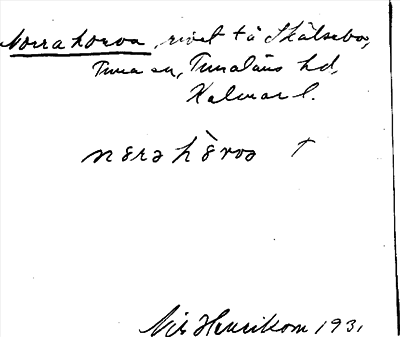 Norrahorva, rivet tå Skälsebo,
Tuna sn, Tunaläns hd,
Kalmar l.
nɵra hɵ̀rva †
Nils Henrikson 1931